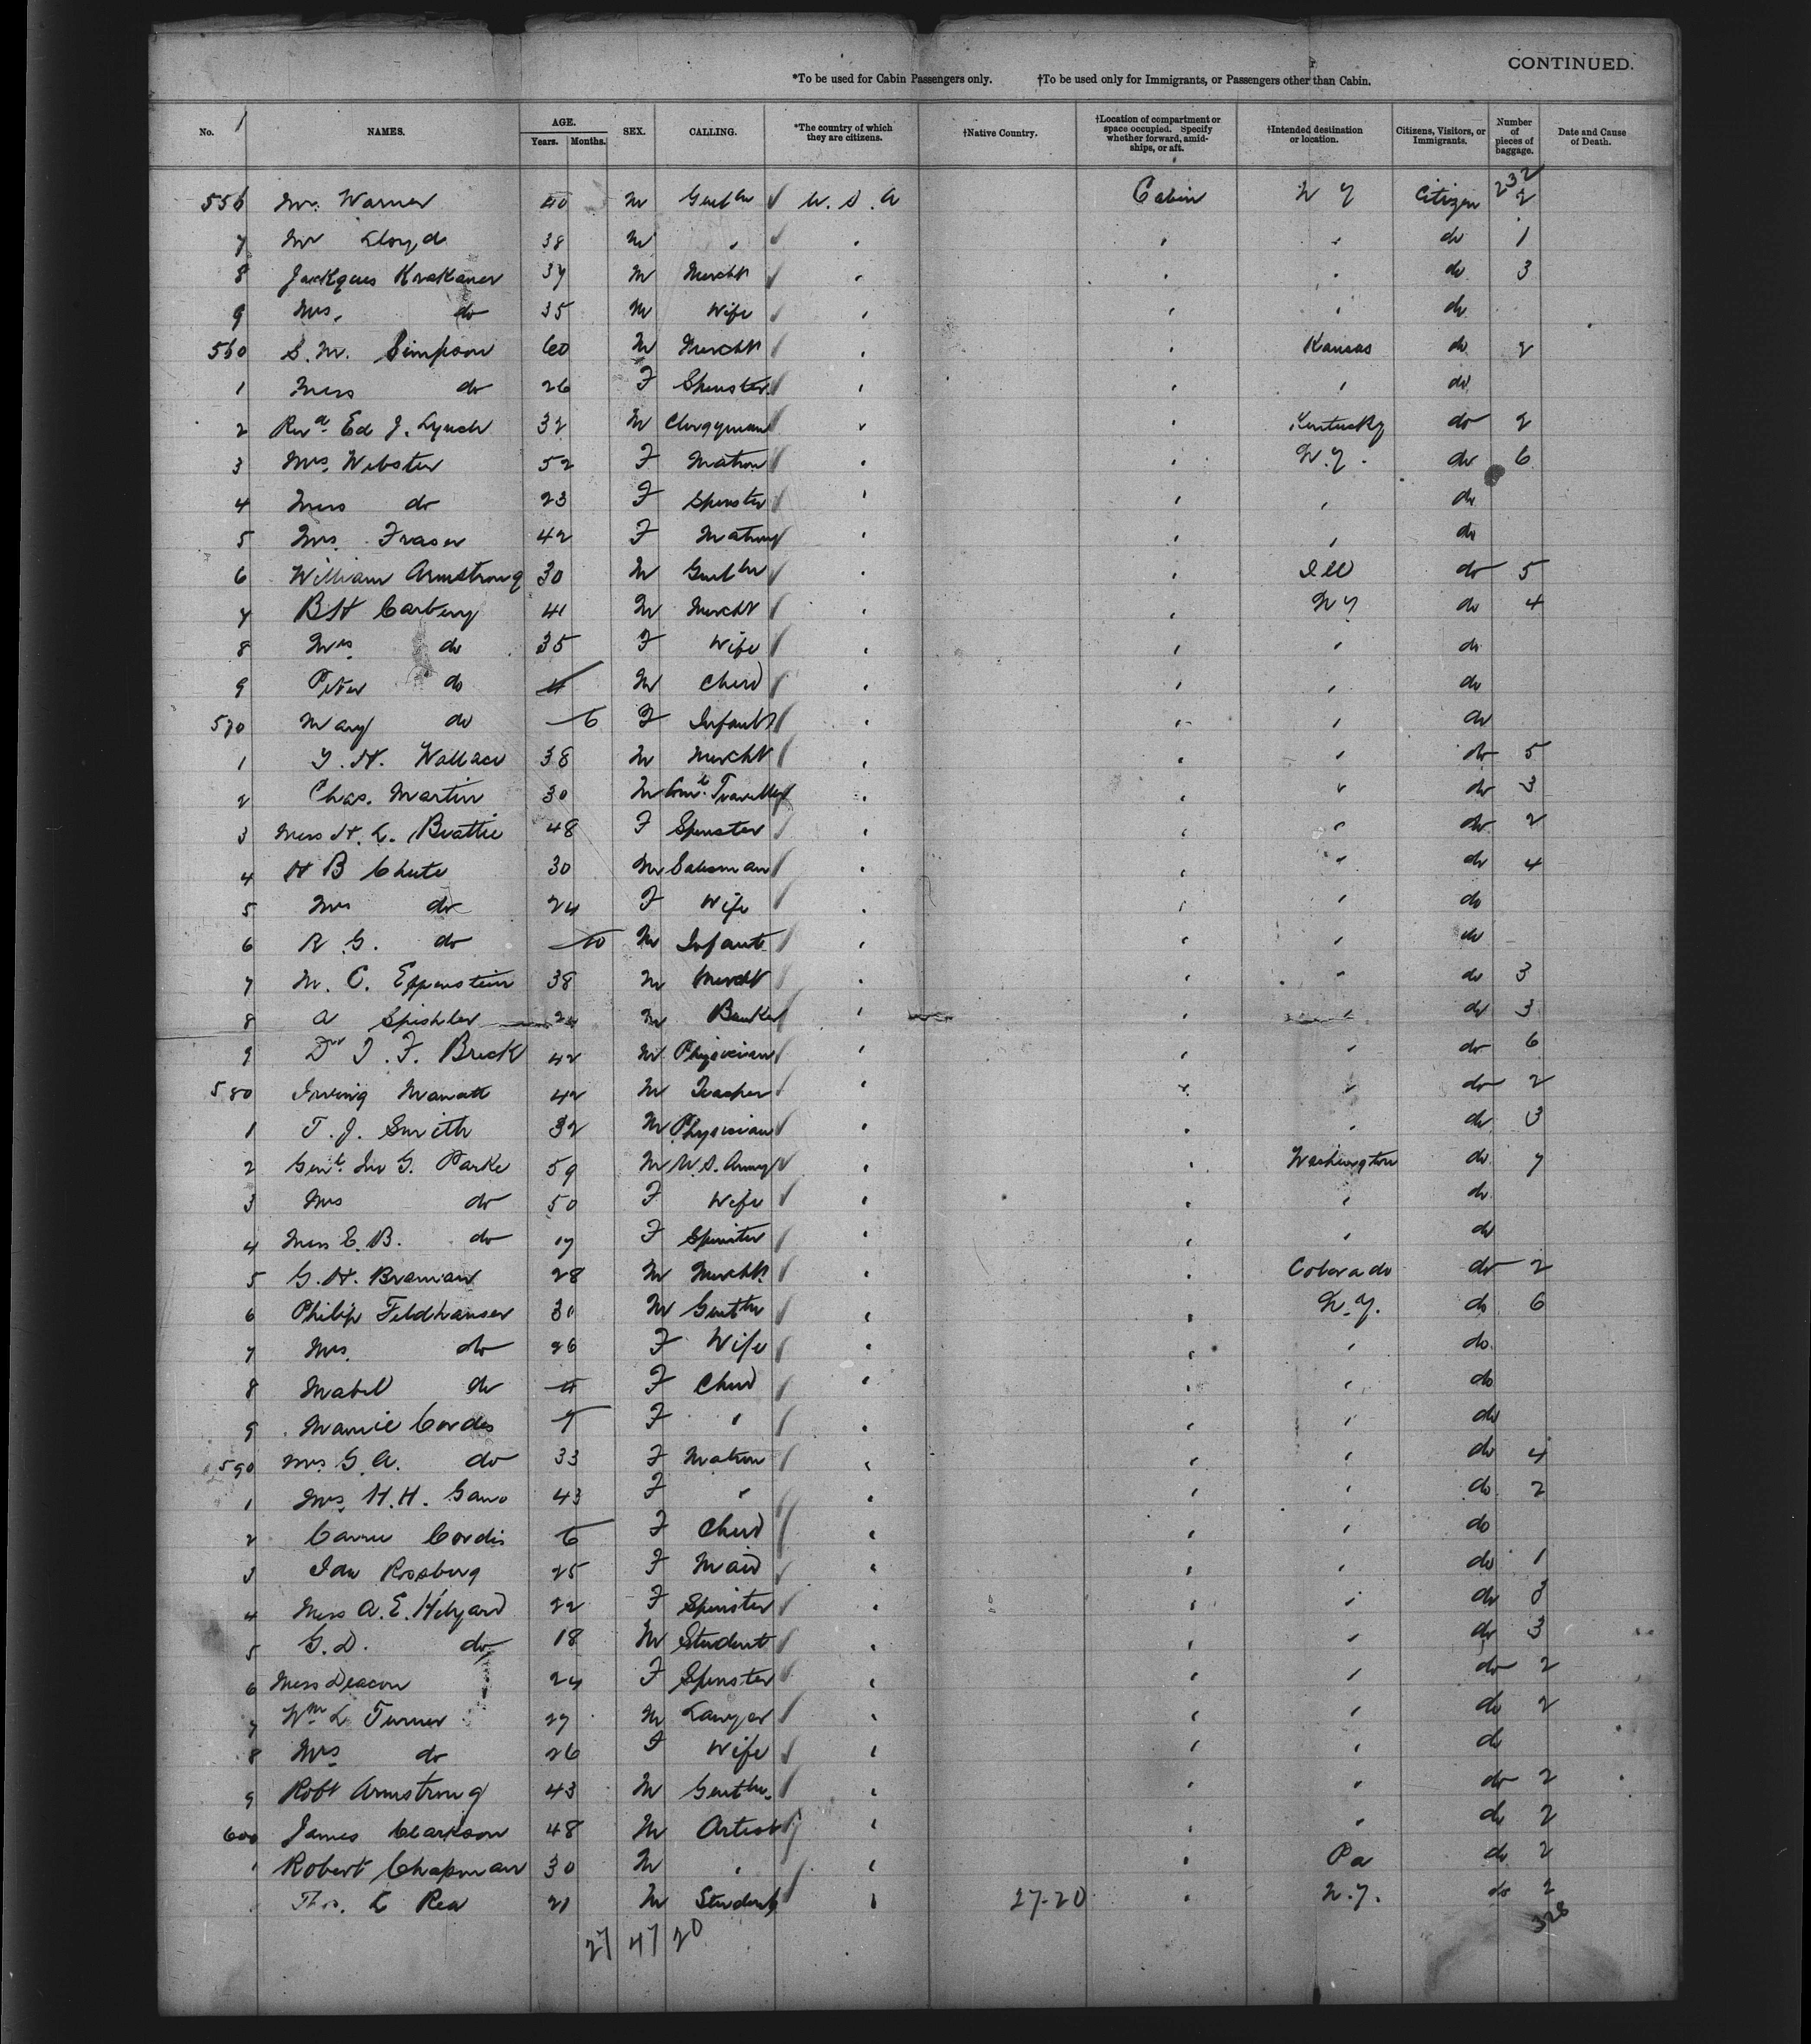 CONTINUED.
*To be used for Cabin Passengers only. †To be used only for Immigrants, or Passengers other than Cabin.
No. 1 NAMES. AGE. Years. Months. SEX. CALLING. *The country of which they are citizens. †Native Country. †Location of compartment or space occupied. Specify whether forward, amidships, or aft. †Intended destination or location. Citizens, Visitors, or Immigrants. Number of pieces of baggage. Date and Cause of Death.
232
556 Mr. Warner 40 M Gentln U. S. A Cabin N Y Citizen 2
7 Mr Lloyd 38 M " " " " do 1
8 Jackques Krakauer 37 M Mercht " " " do 3
9 Mrs. do 35 M Wife " " " do
560 S. M. Simpson 60 M Mercht " " Kansas do 2
1 Miss do 26 F Spinster " " " do
2 Revd Ed J. Lynch 32 M Clergyman " " Kentucky do 2
3 Mrs. Webster 52 F Matron " " N.Y. do 6
4 Miss do 23 F Spinster " " " do
5 Mrs. Fraser 42 F Matron " " " do
6 William Armstrong 30 M Gentln " " Ill do 5
7 BH Carbery 41 M Mercht " " N Y do 4
8 Mrs do 35 F Wife " " " do
9 Peter do 4 M Child " " " do
570 Mary do 6 F Infant " " " do
1 G. H. Wallace 38 M Mercht " " " do 5
2 Chas. Martin 30 M Coml. Traveller " " " do 3
3 Miss H. L. Beattie 48 F Spinster " " " do 2
4 H B Chute 30 M Salesman " " " do 4
5 Mrs do 24 F Wife " " " do
6 R G. do 10 M Infant " " " do
7 M. C. Eppenstein 38 M Mercht " " " do 3
8 A Spishler 24 M Banker " " " do 3
9 Dr J. F. Brick 42 M Physician " " " do 6
580 Irving Manatt 42 M Teacher " " " do 2
1 T. J. Smith 32 M Physician " " " do 3
2 Genl. Jno G. Parke 59 M U.S. Army " " Washington do 7
3 Mrs do 50 F Wife " " " do
4 Miss E. B. do 17 F Spinster " " " do
5 G. H. Braman 28 M Mercht. " " Colorado do 2
6 Philip Feldhauser 30 M Gentln " " N.Y. do 6
7 Mrs. do 26 F Wife " " " do
8 Mabel do 4 F Child " " " do
9 Mamie Cordes 7 F " " " " do
590 Mrs G. A. do 33 F Matron " " " do 4
1 Mrs. H. H. Gano 43 F " " " " do 2
2 Carrie Cordis 6 F Child " " " do
3 Ida Rosberg 25 F Maid " " " do 1
4 Miss A. E. Hilyard 22 F Spinster " " " do 3
5 G. D. do 18 M Student " " " do 3
6 Miss Deacon 24 F Spinster " " " do 2
7 Wm L Turner 27 M Lawyer " " " do 2
8 Mrs do 26 F Wife " " " do
9 Robt Armstrong 43 M Gentln. " " " do 2
600 James Clarkson 48 M Artist " " " do 2
1 Robert Chapman 30 M " " " Pa do 2
Thos. L Rea 21 M Student " 27-20 " N.Y. do 2
27 47 20 328